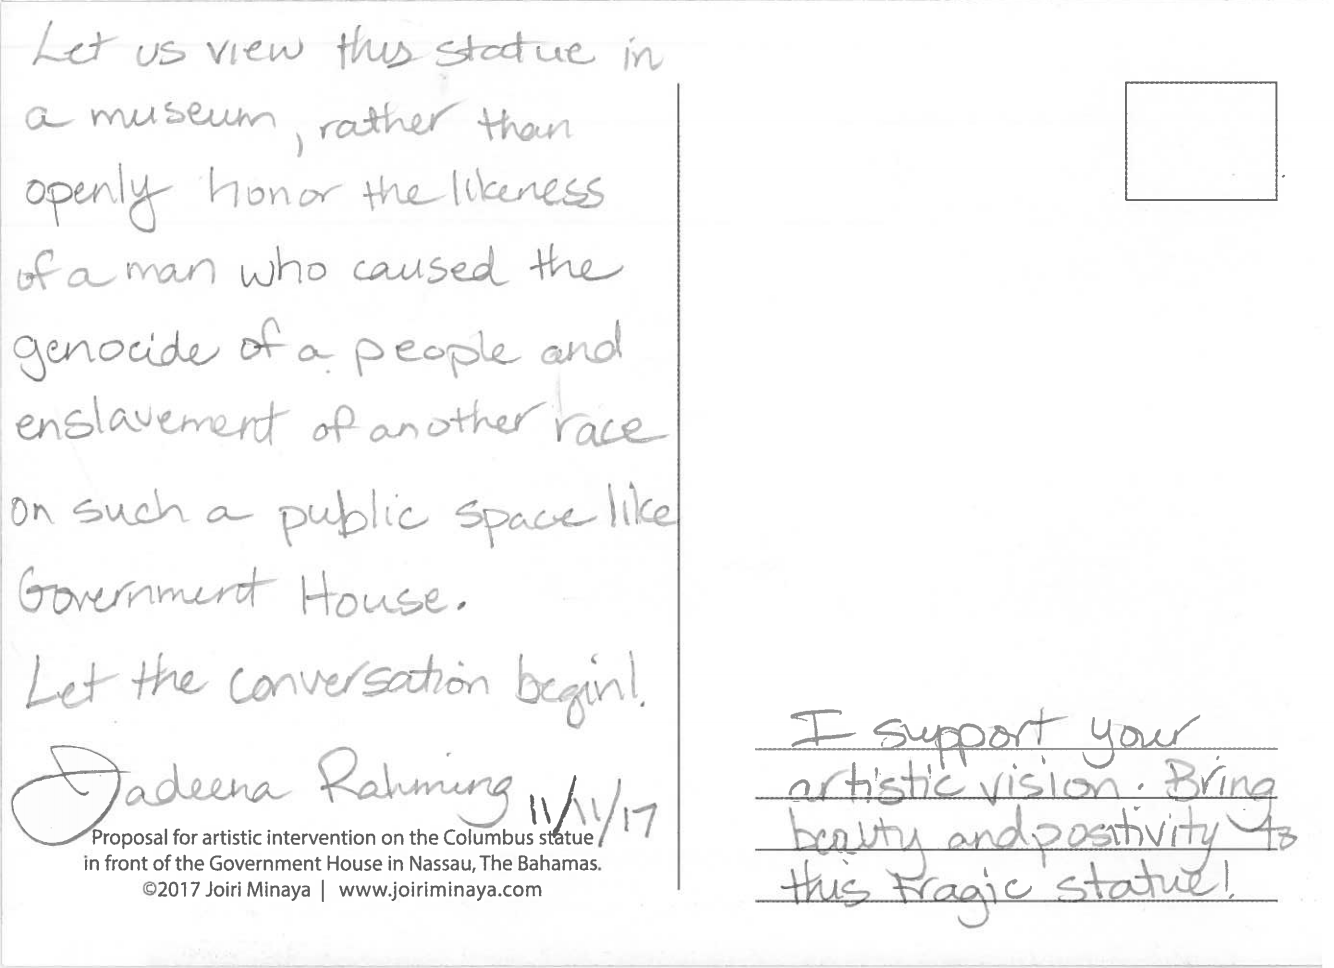 Let us view this statue in
a museum, rather than
openly honor the likeness
of a man who caused the
genocide of a people and
enslavement of another race
on such a public space like
Government House.
Let the conversation begin!
Jadeena Rahming 11/11/17
Proposal for artistic intervention on the Columbus statue
in front of the Government House in Nassau, The Bahamas.
©2017 Joiri Minaya | www.joiriminaya.com
I support your
artistic vision. Bring
beauty and positivity to
this tragic statue!